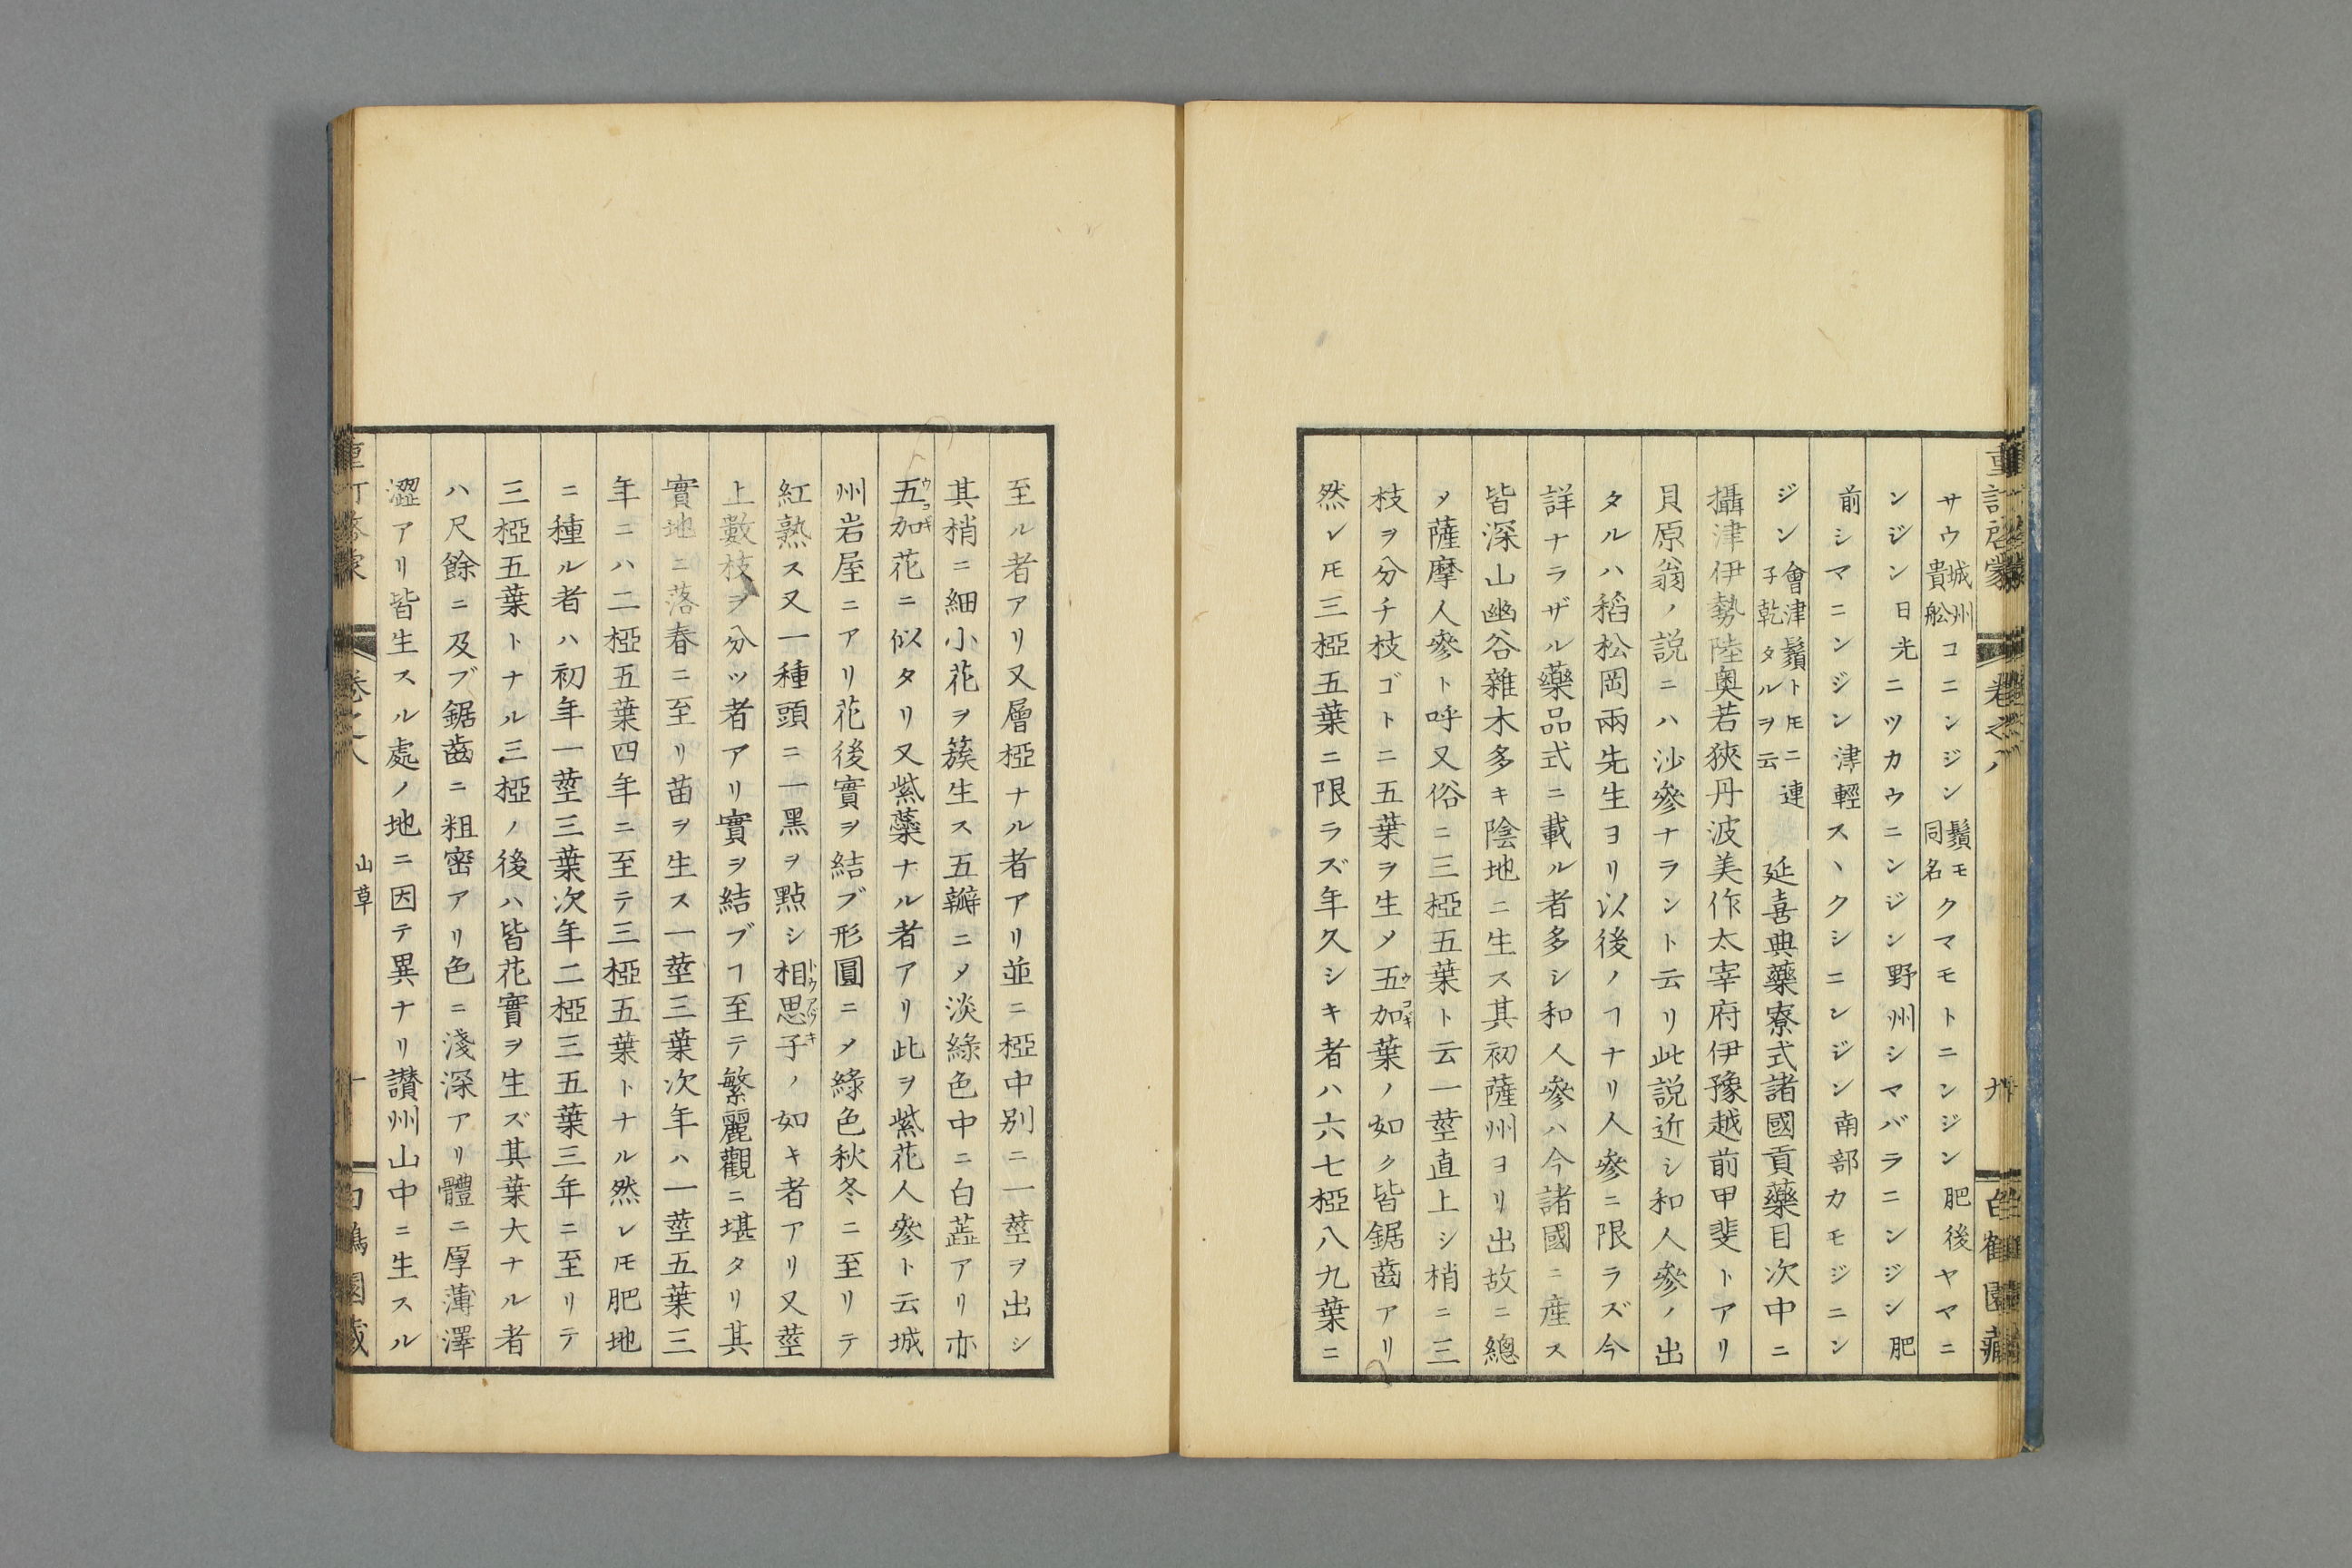 サウ 城州貴舩 コニンジン 鬚モ同名 クマモトニンジン 肥後 ヤマニ
ンジン 日光 ニツカウニンジン 野州 シマバラニンジン 肥
前 シマニンジン 津輕 スヽクシニンジン 南部 カモジニン
ジン 會津鬚トモニ連子乾タルヲ云 延喜典藥寮式諸國貢藥目次中ニ
攝津伊勢陸奥若狹丹波美作太宰府伊豫越前甲斐トアリ
貝原翁ノ説ニハ沙參ナラント云リ此説近シ和人參ノ出
タルハ稻松岡兩先生ヨリ以後ノヿナリ人參ニ限ラズ今
詳ナラザル藥品式ニ載ル者多シ和人參ハ今諸國ニ産ス
皆深山幽谷雜木多キ陰地ニ生ス其初薩州ヨリ出故ニ總
メ薩摩人參ト呼又俗ニ三椏五葉ト云一莖直上シ梢ニ三
枝ヲ分チ枝ゴトニ五葉ヲ生メ五加葉ノ如ク皆鋸齒アリ
然レ𪜈三椏五葉ニ限ラズ年久シキ者ハ六七椏八九葉ニ
至ル者アリ又層椏ナル者アリ並ニ椏中别ニ一莖ヲ出シ
其梢ニ細小花ヲ簇生ス五瓣ニメ淡綠色中ニ白蕋アリ亦
五加花ニ似タリ又紫蘂ナル者アリ此ヲ紫花人參ト云城
州岩屋ニアリ花後實ヲ結ブ形圓ニメ綠色秋冬ニ至リテ
紅熟ス又一種頭ニ一黑ヲ點シ相思子ノ如キ者アリ又莖
上數枝ヲ分ツ者アリ實ヲ結ブヿ至テ繁麗觀ニ堪タリ其
實地ニ落春ニ至リ苗ヲ生ス一莖三葉次年ハ一莖五葉三
年ニハ二椏五葉四年ニ至テ三椏五葉トナル然レ𪜈肥地
ニ種ル者ハ初年一莖三葉次年二椏三五葉三年ニ至リテ
三椏五葉トナル三椏ノ後ハ皆花實ヲ生ズ其葉大ナル者
ハ尺餘ニ及ブ鋸齒ニ粗密アリ色ニ淺深アリ體ニ厚薄澤
澀アリ皆生スル處ノ地ニ因テ異ナリ讃州山中ニ生スル
山草